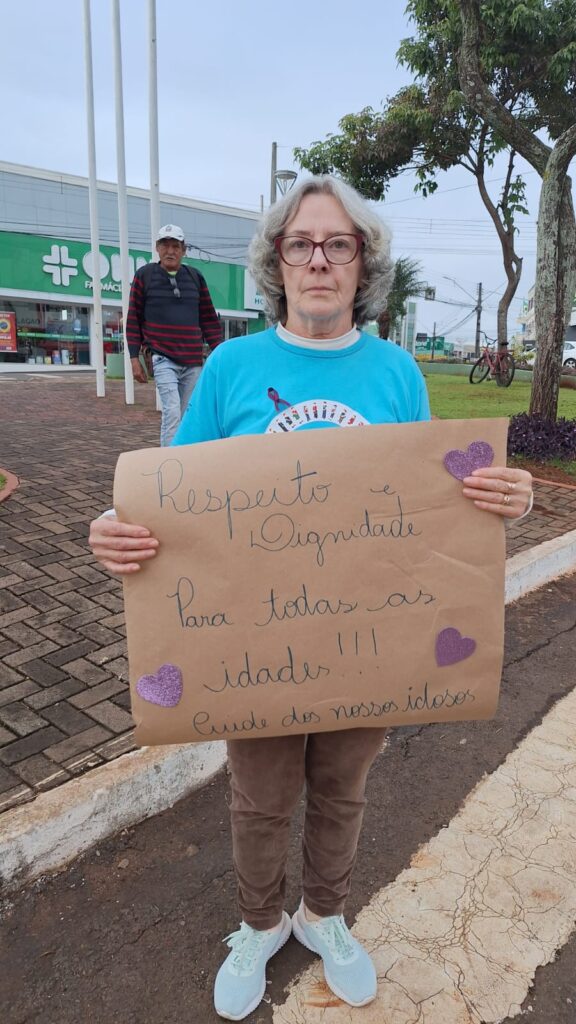 FARMÁCI
Respeito e
Dignidade
Para todas as
idades!!!
Cuide dos nossos idosos